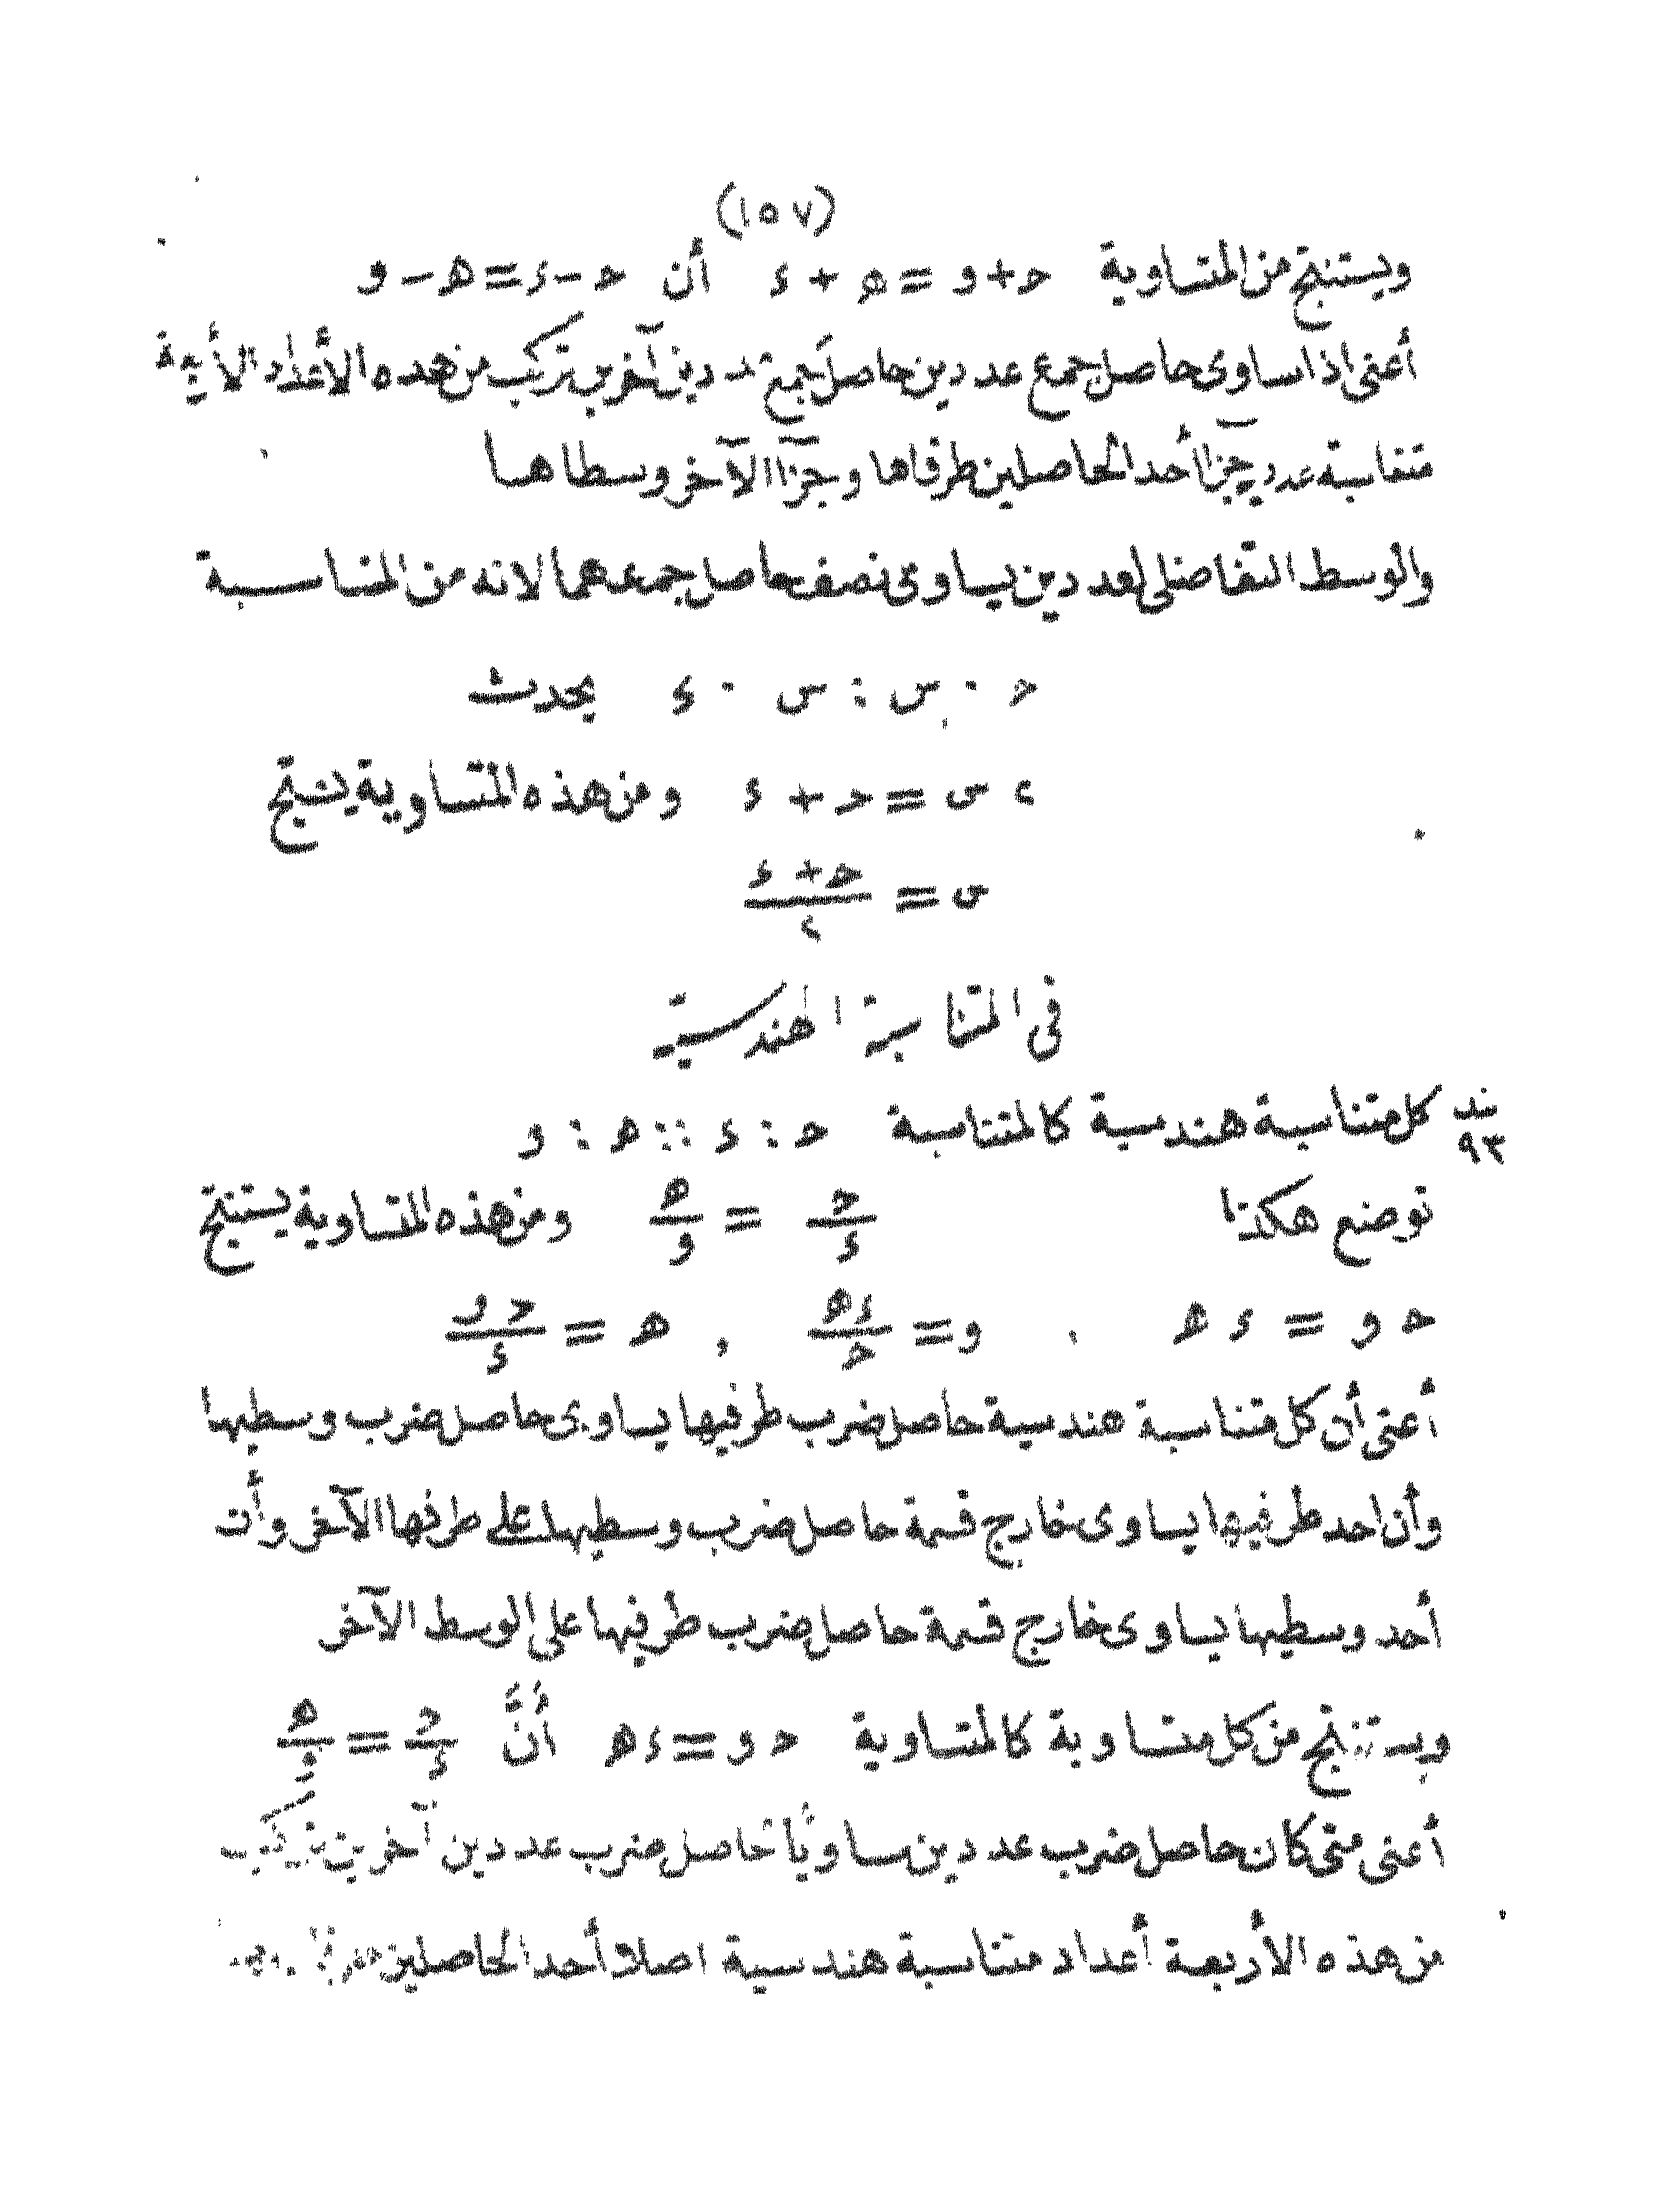 (١٥٧)
ويستنتج من المتساوية حـ + و = هـ + ء أن حـ - ء = هـ - و
أعنى اذا ساوى حاصل جمع عددين حاصل جمع عددين آخرين تركب من هذه الأعداد الأربعة
متناسبة عددية جزآ أحد الحاصلين طرفاها وجزآ الآخر وسطاها
والوسط التفاضلى لعددين يساوى نصف حاصل جمعهما لانه من المتناسبة
حـ ٠ س : س ٠ ء يحدث
٢ س = حـ + ء ومن هذه المتساوية ينتج
س = (حـ + ء) / ٢
فى المتناسبة الهندسية
بند ٩٣ كل متناسبة هندسية كالمتناسبة حـ : ء :: هـ : و
توضع هكذا حـ / ء = هـ / و ومن هذه المتساوية يستنتج
حـ و = ء هـ ، و = ء هـ / حـ ، هـ = حـ و / ء
أعنى أن كل متناسبة هندسية حاصل ضرب طرفيها يساوى حاصل ضرب وسطيها
وأن احد طرفيها يساوى خارج قسمة حاصل ضرب وسطيها على طرفها الآخر وأن
أحد وسطيها يساوى خارج قسمة حاصل ضرب طرفيها على الوسط الآخر
ويستنتج من كل متساوية كالمتساوية حـ و = ء هـ أنَّ حـ / ء = هـ / و
أعنى متى كان حاصل ضرب عددين مساويا حاصل ضرب عددين آخرين تركب
من هذه الأربعة أعداد متناسبة هندسية اصلا أحد الحاصلين